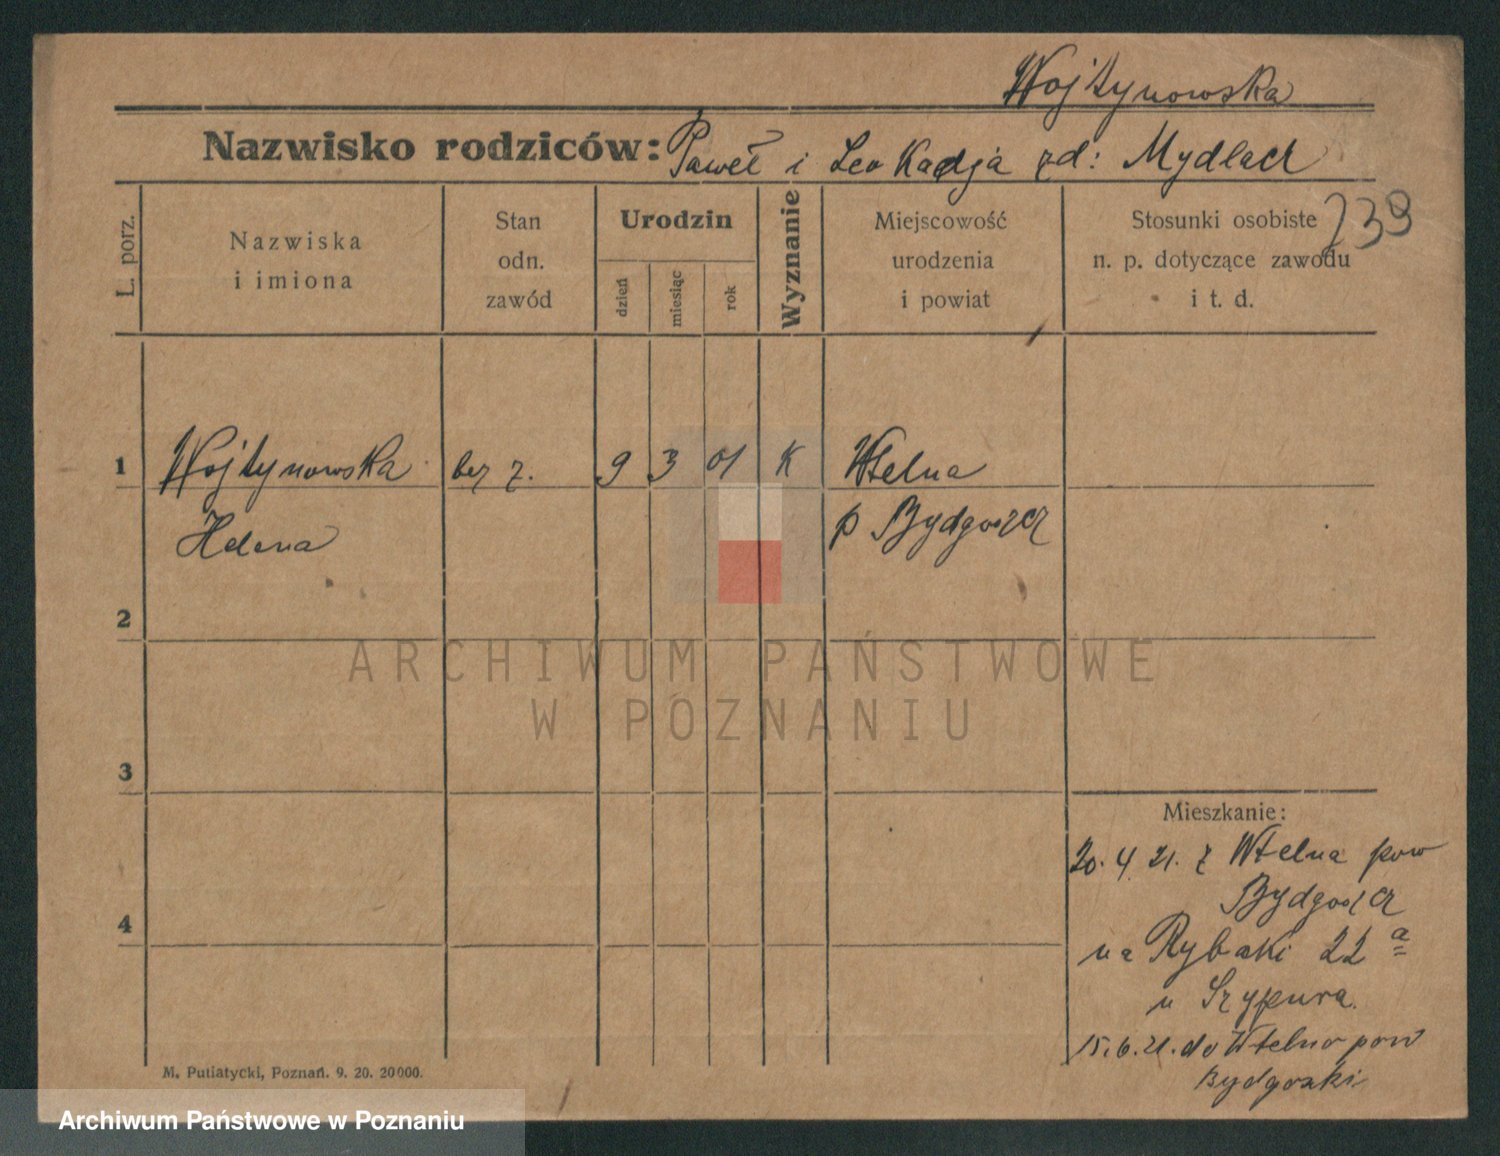 Wojtynowska
Nazwisko rodziców: Paweł i Leokadja zd: Mydlach
239
L. porz.
Nazwiska
i imiona
Stan
odn.
zawód
Urodzin
dzień
miesiąc
rok
Wyznanie
Miejscowość
urodzenia
i powiat
Stosunki osobiste
n. p. dotyczące zawodu
i t. d.
1 Wojtynowska bez z. 9 3 01 K Wtelna
Helena p Bydgoszcz
2
ARCHIWUM PAŃSTWOWE
W POZNANIU
3
Mieszkanie:
20. 4. 21. z Wtelna pow
Bydgoszcz
4
na Rybaki 22 a
u Szypura.
15. 6. 21. do Wtelno pow
Bydgoski
M. Putiatycki, Poznań. 9. 20. 20000.
Archiwum Państwowe w Poznaniu